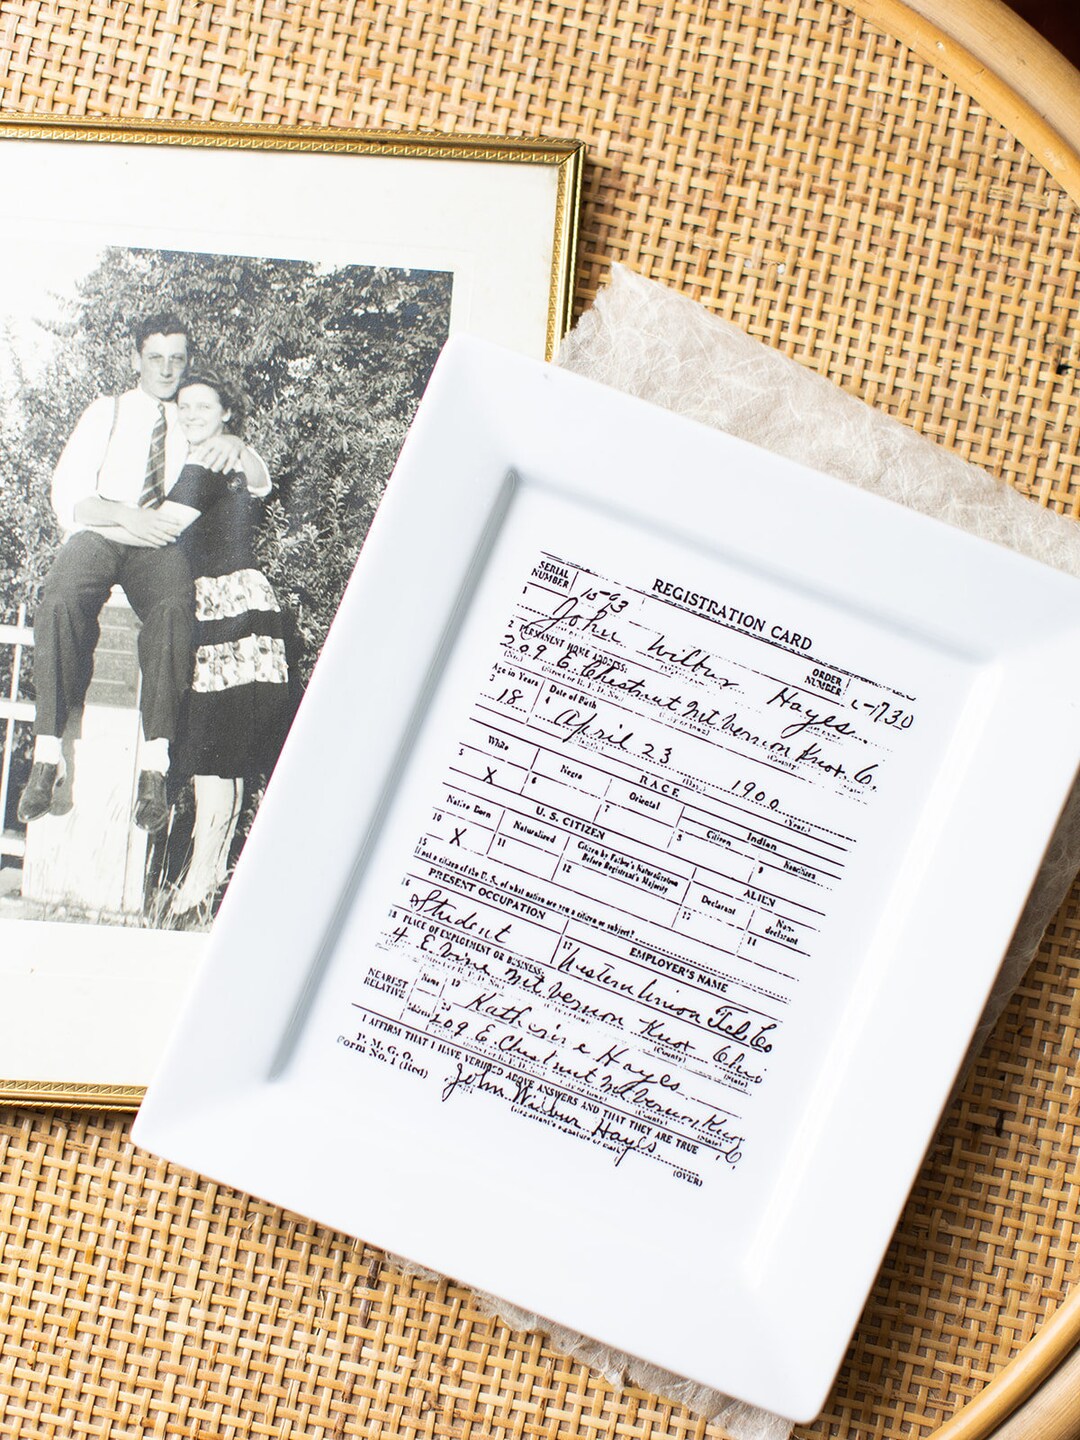 REGISTRATION CARD
SERIAL NUMBER 1593 ORDER NUMBER 1730
1 John Wilbur Hayes
2 PERMANENT HOME ADDRESS:
209 E. Chestnut Mt Vernon Knox O.
(No.) (County)
Age in Years Date of Birth
3 18 4 April 23 1900
(Day.) (Year.)
RACE
White Negro Oriental Indian
Citizen Noncitizen
5 X 6 7 8 9
U. S. CITIZEN ALIEN
Native Born Naturalized Citizen by Father's Naturalization Before Registrant's Majority Declarant Non-declarant
10 X 11 12 13 14
15 If not a citizen of the U. S., of what nation are you a citizen or subject?
PRESENT OCCUPATION EMPLOYER'S NAME
16 Student 17 Western Union Tel Co
18 PLACE OF EMPLOYMENT OR BUSINESS:
4 E. Vine Mt Vernon Knox Ohio
(County) (State)
NEAREST RELATIVE Name 19 Katherine Hayes
Address 20 209 E. Chestnut Mt Vernon, Knox O.
(County) (State)
I AFFIRM THAT I HAVE VERIFIED ABOVE ANSWERS AND THAT THEY ARE TRUE
P. M. G. O.
Form No. 1 (Red) John Wilbur Hayes
(OVER)